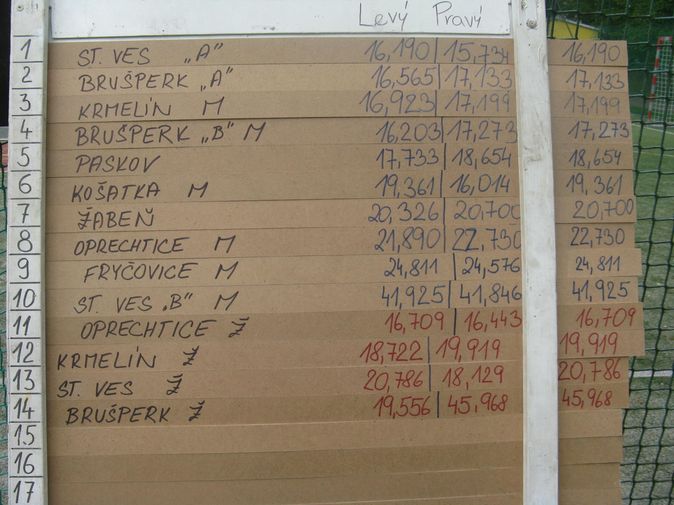 Levý Pravý
1 ST. VES „A" 16,190 15,734 16,190
2 BRUŠPERK „A" 16,565 17,133 17,133
3 KRMELÍN M 16,923 17,199 17,199
4 BRUŠPERK „B" M 16,203 17,273 17,273
5 PASKOV 17,733 18,654 18,654
6 KOŠATKA M 19,361 16,014 19,361
7 ŽABEŇ 20,326 20,700 20,700
8 OPRECHTICE M 21,890 22,730 22,730
9 FRYČOVICE M 24,811 24,576 24,811
10 ST. VES „B" M 41,925 41,846 41,925
11 OPRECHTICE Ž 16,709 16,443 16,709
12 KRMELÍN Ž 18,722 19,919 19,919
13 ST. VES Ž 20,786 18,129 20,786
14 BRUŠPERK Ž 19,556 45,968 45,968
15
16
17